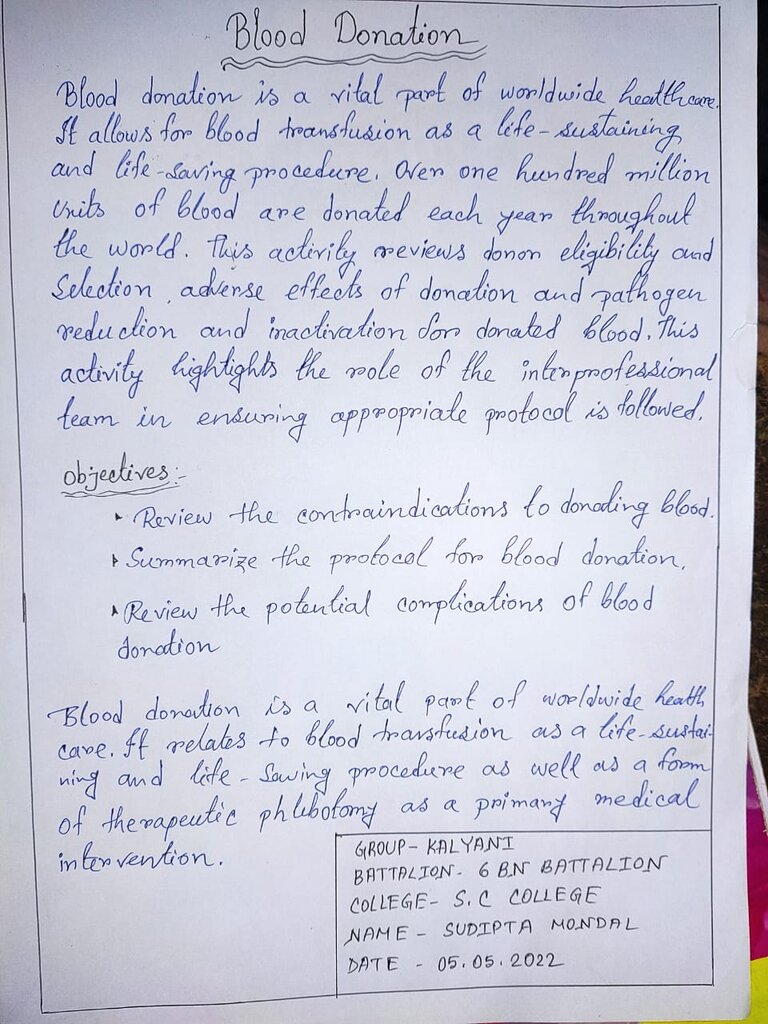 Blood Donation
Blood donation is a vital part of worldwide healthcare.
It allows for blood transfusion as a life-sustaining
and life-saving procedure. Over one hundred million
Units of blood are donated each year throughout
the world. This activity reviews donor eligibility and
Selection, adverse effects of donation and pathogen
reduction and inactivation for donated blood. This
activity hightights the role of the interprofessional
team in ensuring appropriate protocol is followed.
Objectives:-
‣ Review the contraindications to donating blood.
‣ Summarize the protocol for blood donation.
‣ Review the potential complications of blood
donation
Blood donation is a vital part of worldwide health
care. It relates to blood transfusion as a life-sustai-
ning and life-Saving procedure as well as a form
of therapeutic phlebotomy as a primary medical
intervention.
GROUP- KALYANI
BATTALION- 6 BN BATTALION
COLLEGE- S.C COLLEGE
NAME - SUDIPTA MONDAL
DATE - 05.05.2022